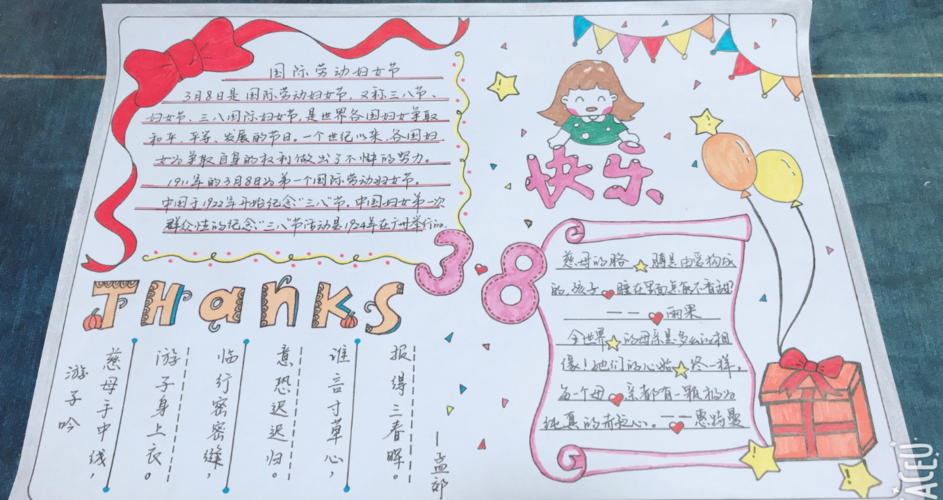 国际劳动妇女节
3月8日是国际劳动妇女节,又称三八节、
妇女节、三八国际妇女节,是世界各国妇女争取
和平、平等、发展的节日。一个世纪以来,各国妇
女为争取自身的权利做出了不懈的努力。
1911年的3月8日为第一个国际劳动妇女节。
中国于1922年开始纪念"三八"节,中国妇女第一次
群众性的纪念"三八"节活动是1924年在广州举行的。
快乐
3 8
慈母的胳 膊是由爱构成
的,孩子 睡在里面怎能不香甜?
——雨果
全世界 的母亲是多么的相
像!她们的心始 终一样,
每一个母 亲都有一颗极为
纯真的赤子心。 ——惠特曼
THanKS
游子吟
慈母手中线,
游子身上衣。
临行密密缝,
意恐迟迟归。
谁言寸草心,
报得三春晖。
—孟郊
ACEU